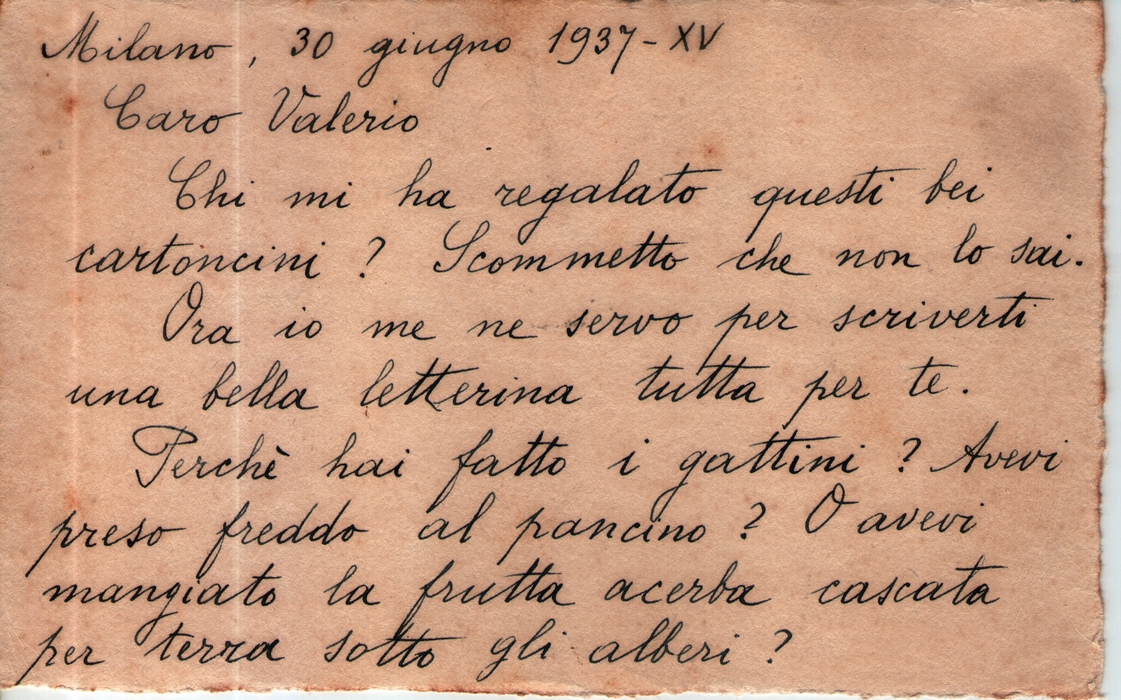 Milano, 30 giugno 1937-XV
Caro Valerio
Chi mi ha regalato questi bei
cartoncini? Scommetto che non lo sai.
Ora io me ne servo per scriverti
una bella letterina tutta per te.
Perchè hai fatto i gattini? Avevi
preso freddo al pancino? O avevi
mangiato la frutta acerba cascata
per terra sotto gli alberi?